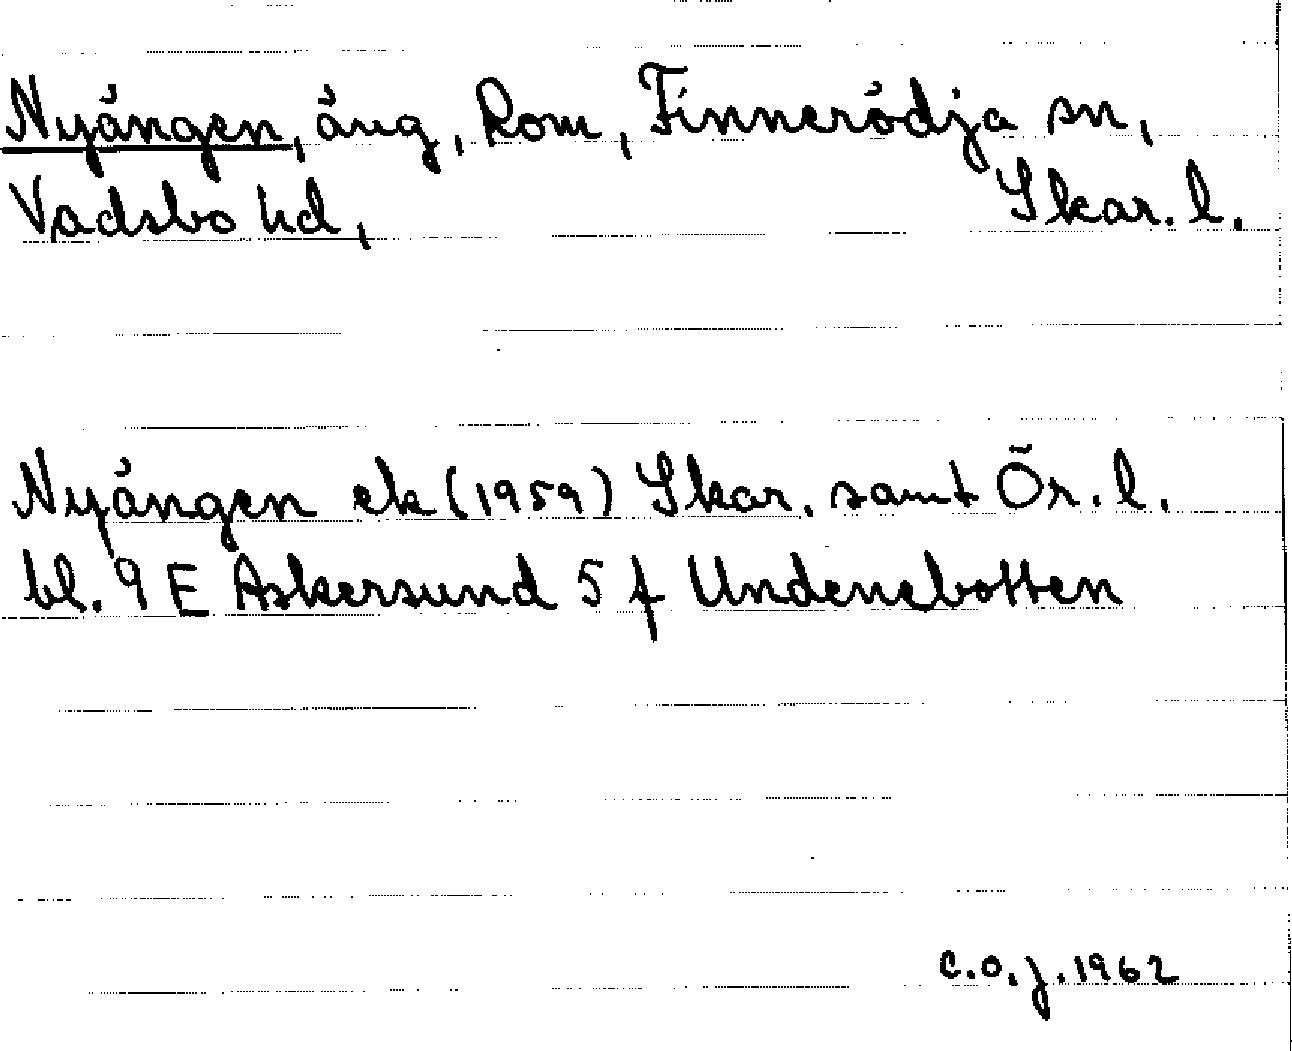 Nyängen, äng, Rom, Finnerödja sn,
Vadsbo hd, Skar. l.
Nyängen ek (1959) Skar. samt Ör. l.
bl. 9 E Askersund 5 f Undenebotten
C.O.J. 1962